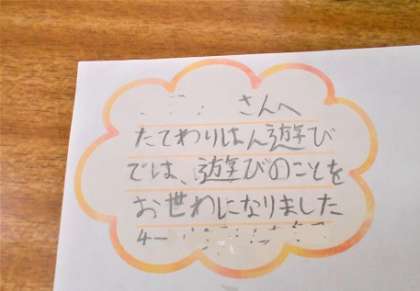 さんへ
たてわりはん遊び
では、遊びのことを
お世わになりました
4-